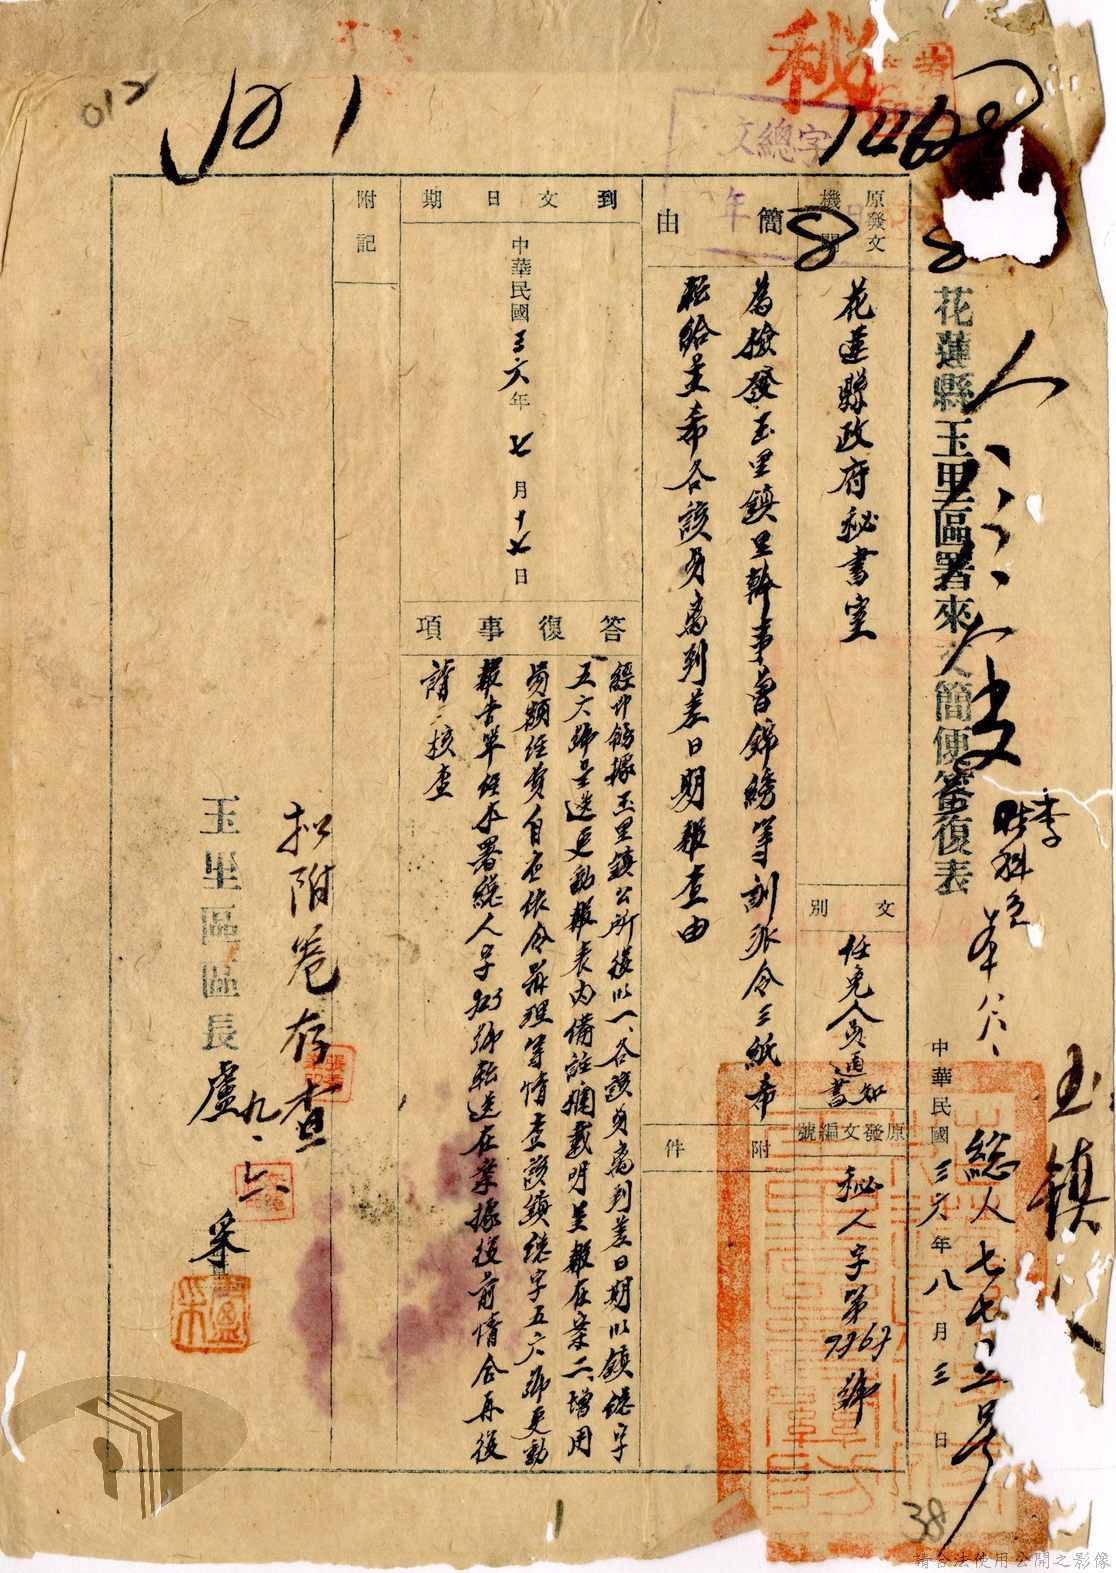 012
101
秘
14628
文總字
年
8
8
花蓮縣玉里區署來文簡便簽復表
中華民國三六年八月三日
總人七七
玉鎮
原發文機關
花蓮縣政府秘書室
文別
任免人員通知書
原發文編號
秘人字第
號
簡由
為檢發玉里鎮里幹事曾錦綉等訓派令三紙希
轉給並希各該員离到差日期報查由
附件
到文日期
中華民國三六年七月十七日
答復事項
經即飭據玉里鎮公所復以一、各該員离到差日期以鎮總字
五六號呈送更動報表內備註欄載明呈報在案二、增用
員額經費自應依令辦理等情查該鎮總字五六號更動
報告單經本署總人字925號轉送在案據復前情合再復
請核查
附記
拟附卷存查
玉里區區長盧
九、六
38
1
請合法使用公開之影像